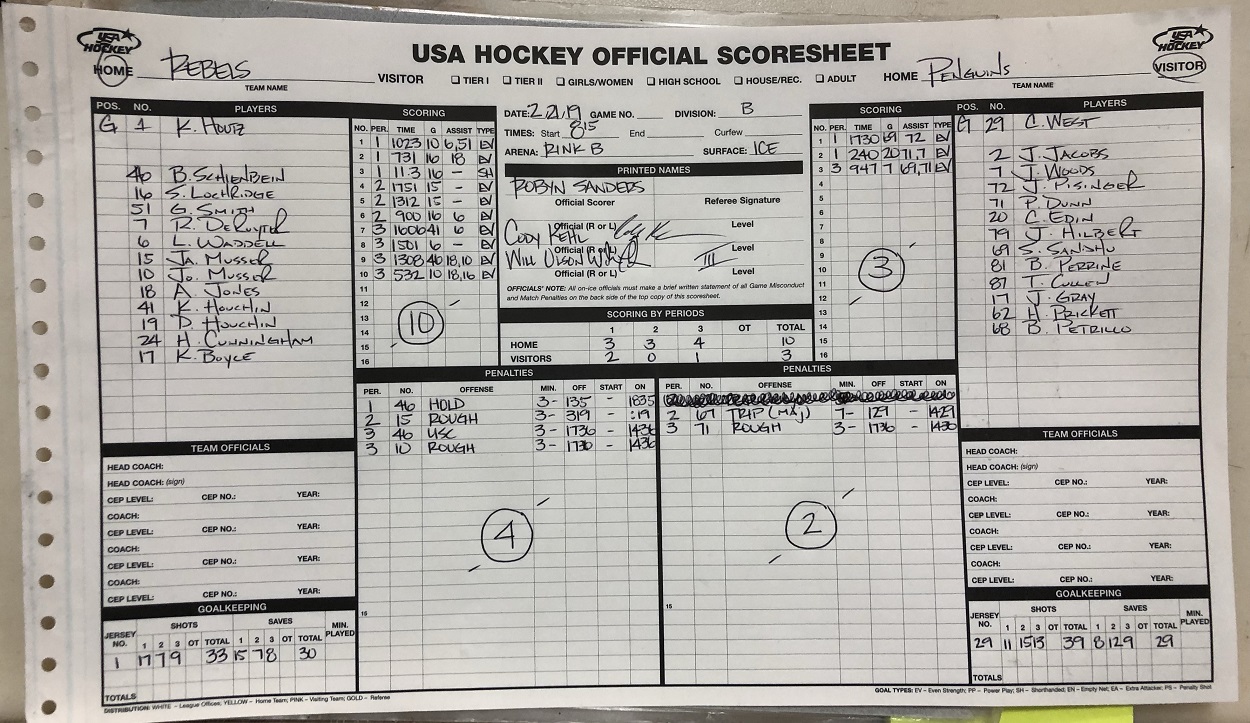 USA HOCKEY
USA HOCKEY OFFICIAL SCORESHEET
USA HOCKEY
HOME REBELS VISITOR ☐ TIER I ☐ TIER II ☐ GIRLS/WOMEN ☐ HIGH SCHOOL ☐ HOUSE/REC. ☐ ADULT HOME PENGUINS VISITOR
TEAM NAME TEAM NAME
POS. NO. PLAYERS
G 1 K. HOUTZ
46 B. SCHIENBEIN
16 S. LOCHRIDGE
51 G. SMITH
7 R. DERUYTER
6 L. WADDELL
15 JA. MUSSER
10 JO. MUSSER
18 A. JONES
41 K. HOUCHIN
19 D. HOUCHIN
24 H. CUNNINGHAM
17 K. BOYCE
SCORING
NO. PER. TIME G ASSIST TYPE
1 1 1023 10 6,51 EV
2 1 731 16 18 EV
3 1 11.3 16 - SH
4 2 1751 15 - EV
5 2 1312 15 - EV
6 2 900 16 6 EV
7 3 1606 41 6 EV
8 3 1501 6 - EV
9 3 1308 46 18,10 EV
10 3 532 10 18,16 EV
11
12
13
14
15
16
10
DATE: 2/21/19 GAME NO. DIVISION: B
TIMES: Start 8:15 End Curfew
ARENA: RINK B SURFACE: ICE
PRINTED NAMES
ROBYN SANDERS
Official Scorer Referee Signature
CODY KEHL
Official (R or L) Level
Official (R or L) Level
WILL OLSON III
Official (R or L) Level
OFFICIALS' NOTE: All on-ice officials must make a brief written statement of all Game Misconduct
and Match Penalties on the back side of the top copy of this scoresheet.
SCORING BY PERIODS
1 2 3 OT TOTAL
HOME 3 3 4 10
VISITORS 2 0 1 3
SCORING
NO. PER. TIME G ASSIST TYPE
1 1 1730 69 72 EV
2 1 240 20 71,7 EV
3 3 947 7 69,71 EV
4
5
6
7
8
9
10
11
12
13
14
15
16
3
POS. NO. PLAYERS
G 29 C. WEST
2 J. JACOBS
7 J. WOODS
72 J. PISINGER
71 P. DUNN
20 C. EDIN
79 J. HILBERT
69 S. SANDHU
81 B. PERRINE
87 T. CULLEN
17 J. GRAY
62 H. PRICKETT
68 B. PETRILLO
PENALTIES
PER. NO. OFFENSE MIN. OFF START ON
1 46 HOLD 3- 135 - 1835
2 15 ROUGH 3- 319 - :19
3 46 USC 3- 1736 - 1436
3 10 ROUGH 3- 1736 - 1436
4
15
PENALTIES
PER. NO. OFFENSE MIN. OFF START ON
2 67 TRIP (MAJ) 7- 129 - 1429
3 71 ROUGH 3- 1736 - 1436
2
15
TEAM OFFICIALS
HEAD COACH:
HEAD COACH: (sign)
CEP LEVEL: CEP NO.: YEAR:
COACH:
CEP LEVEL: CEP NO.: YEAR:
COACH:
CEP LEVEL: CEP NO.: YEAR:
COACH:
CEP LEVEL: CEP NO.: YEAR:
GOALKEEPING
JERSEY NO. SHOTS SAVES MIN. PLAYED
1 2 3 OT TOTAL 1 2 3 OT TOTAL
1 17 7 9 33 15 7 8 30
TOTALS
TEAM OFFICIALS
HEAD COACH:
HEAD COACH: (sign)
CEP LEVEL: CEP NO.: YEAR:
COACH:
CEP LEVEL: CEP NO.: YEAR:
COACH:
CEP LEVEL: CEP NO.: YEAR:
COACH:
CEP LEVEL: CEP NO.: YEAR:
GOALKEEPING
JERSEY NO. SHOTS SAVES MIN. PLAYED
1 2 3 OT TOTAL 1 2 3 OT TOTAL
29 11 15 13 39 8 12 9 29
TOTALS
DISTRIBUTION: WHITE – League Offices; YELLOW – Home Team; PINK – Visiting Team; GOLD – Referee
GOAL TYPES: EV – Even Strength; PP – Power Play; SH – Shorthanded; EN – Empty Net; EA – Extra Attacker; PS – Penalty Shot